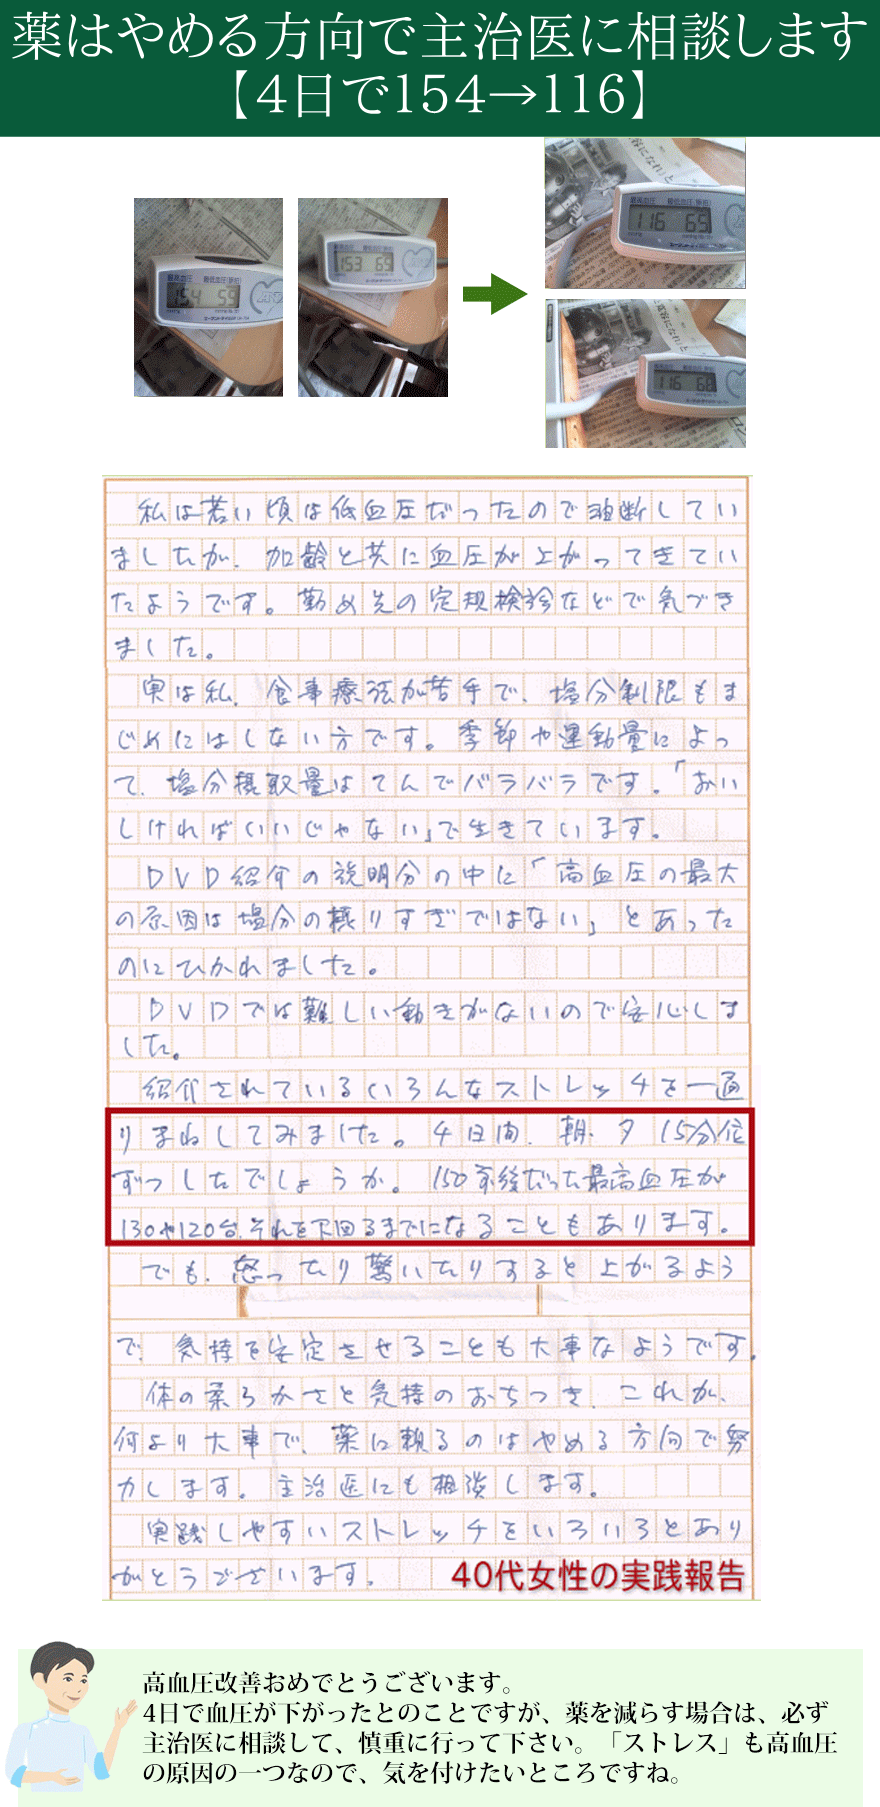 薬はやめる方向で主治医に相談します
【4日で154→116】
最高血圧 最低血圧(脈拍)
154 59
最高血圧 最低血圧(脈拍)
153 69
最高血圧 最低血圧(脈拍)
116 65
116 60
私は若い頃は低血圧だったので油断してい
ましたが、加齢と共に血圧が上がってきてい
たようです。勤め先の定規検診などで気づき
ました。
実は私、食事療法が苦手で、塩分制限もま
じめにはしない方です。季節や運動量によっ
て、塩分摂取量はてんでバラバラです。「おい
しければいいじゃない」で生きています。
DVD紹介の説明分の中に「高血圧の最大
の原因は塩分の摂りすぎではない」とあった
のにひかれました。
DVDでは難しい動きがないので安心しま
した。
紹介されているいろんなストレッチを一通
りまねしてみました。4日間、朝・夕15分位
ずつしたでしょうか。150前後だった最高血圧が
130や120台、それを下回るまでになることもあります。
でも、怒ったり驚いたりすると上がるよう
で、気持を安定させることも大事なようです。
体の柔らかさと気持のおちつき、これが、
何より大事で、薬に頼るのはやめる方向で努
力します。主治医にも相談します。
実践しやすいストレッチをいろいろとあり
がとうございます。
40代女性の実践報告
高血圧改善おめでとうございます。
4日で血圧が下がったとのことですが、薬を減らす場合は、必ず
主治医に相談して、慎重に行って下さい。「ストレス」も高血圧
の原因の一つなので、気を付けたいところですね。